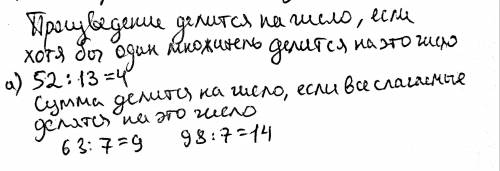 Произведение делится на число, если
хотя бы один множитель делится на это число
а) 52:13=4
Сумма делится на число, если все слагаемые
делятся на это число
63:7=9 98:7=14